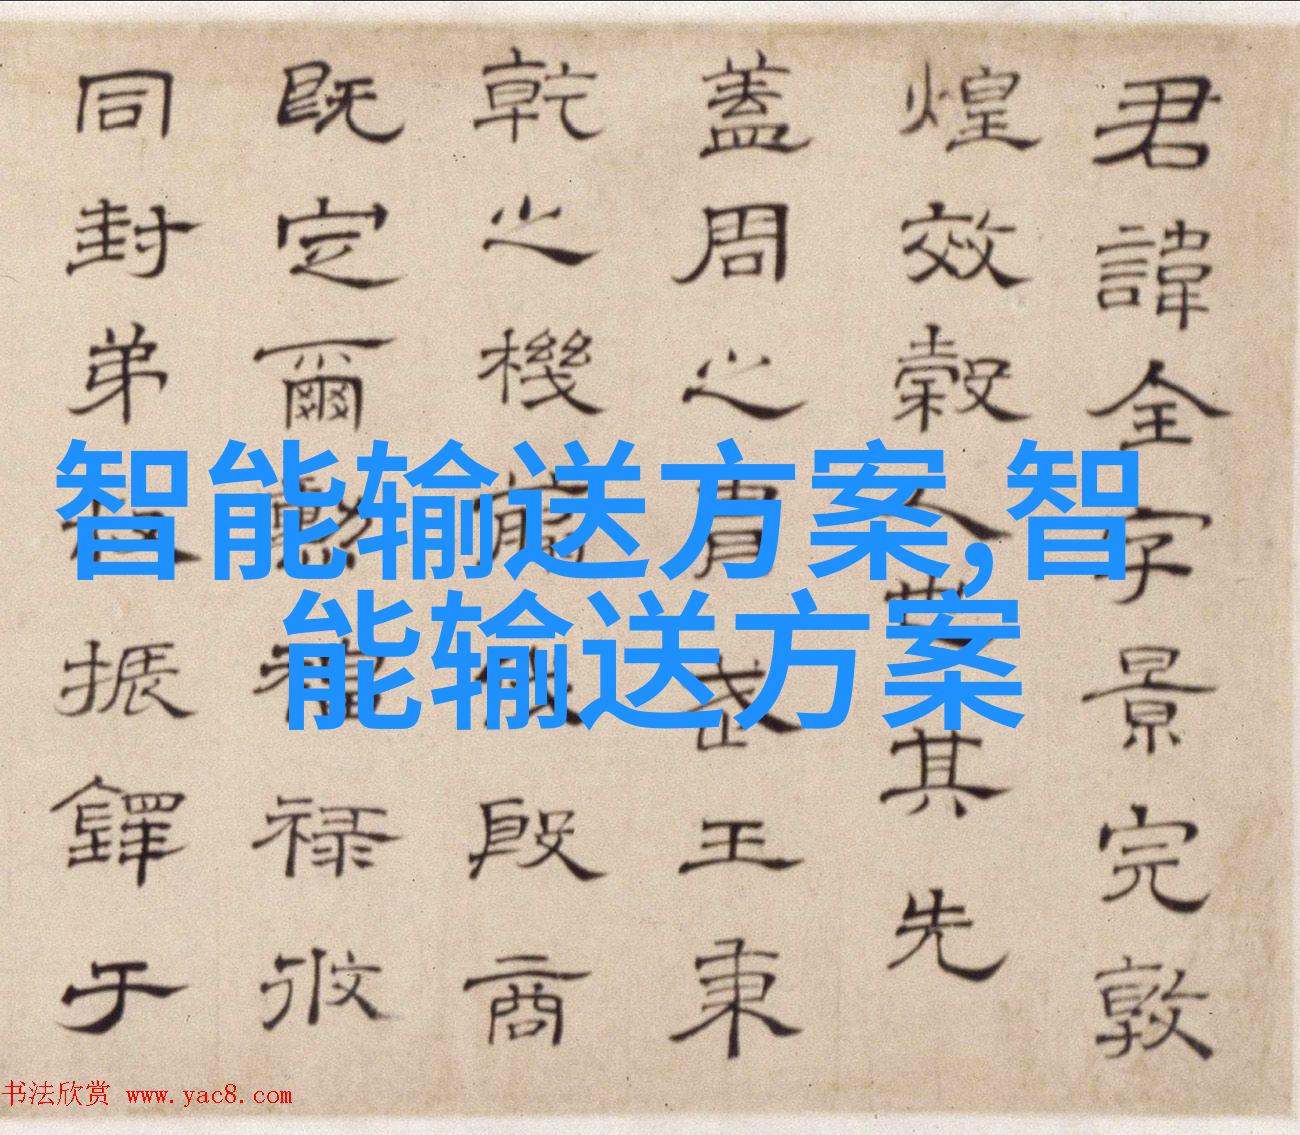 君諱全字景完敦
煌效穀人也其先
蓋周之胄武王秉
乾之機翦伐殷商
既定爾勳福祿攸
同封弟叔振鐸于
智能输送方案,智
能输送方案
书法欣赏 www.yac8.com